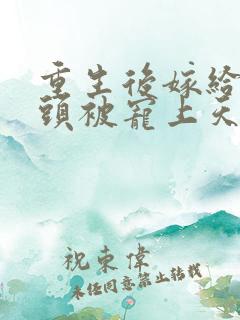 重生後嫁給
頭被寵上天
祝東偉
未任同意禁止转载